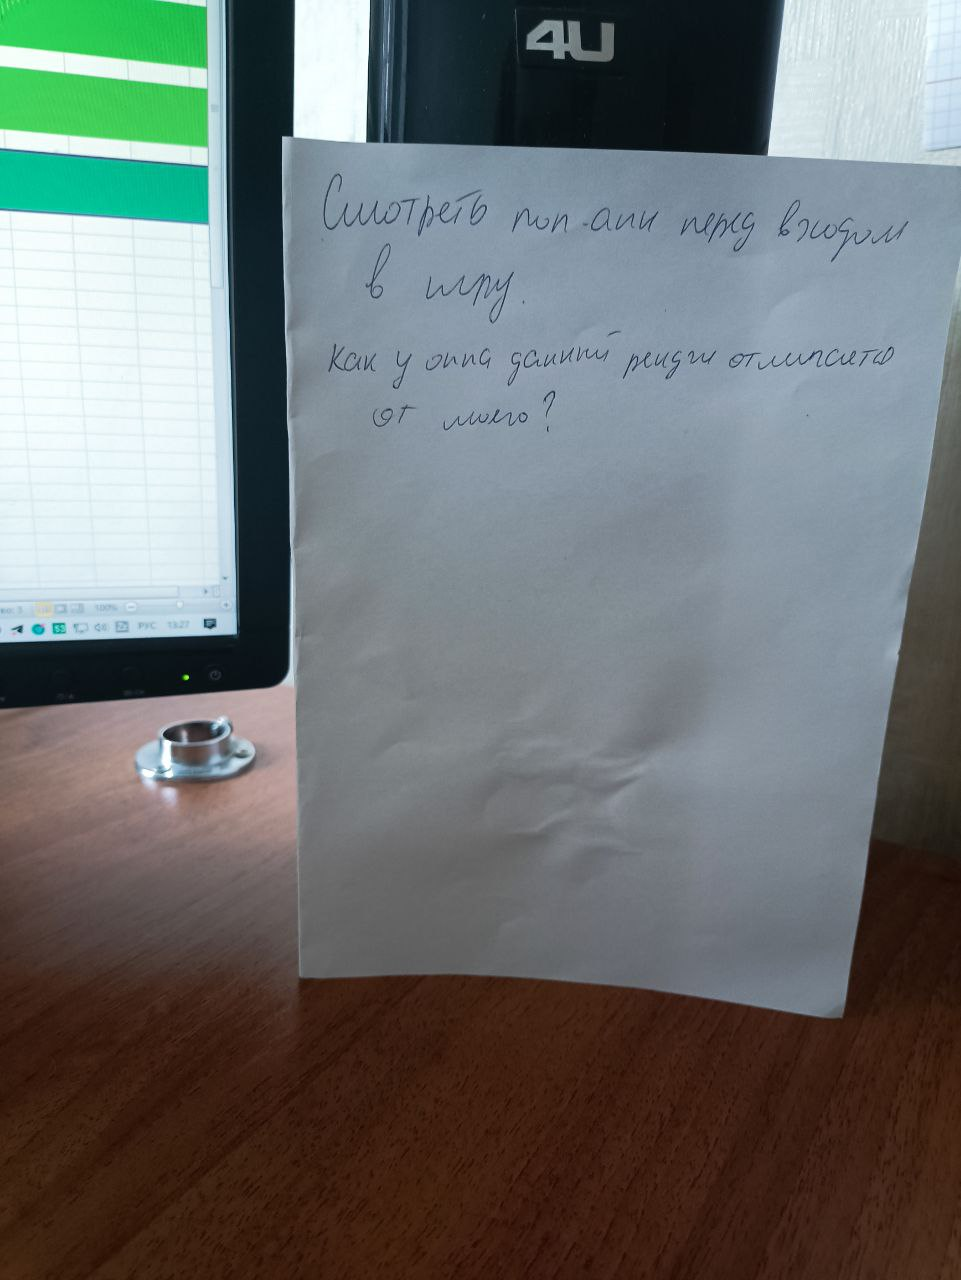 4U
Смотреть поп-апы перед входом
в игру.
Как у оппа данный рендж отличается
от моего?
100%
РУС 13:27